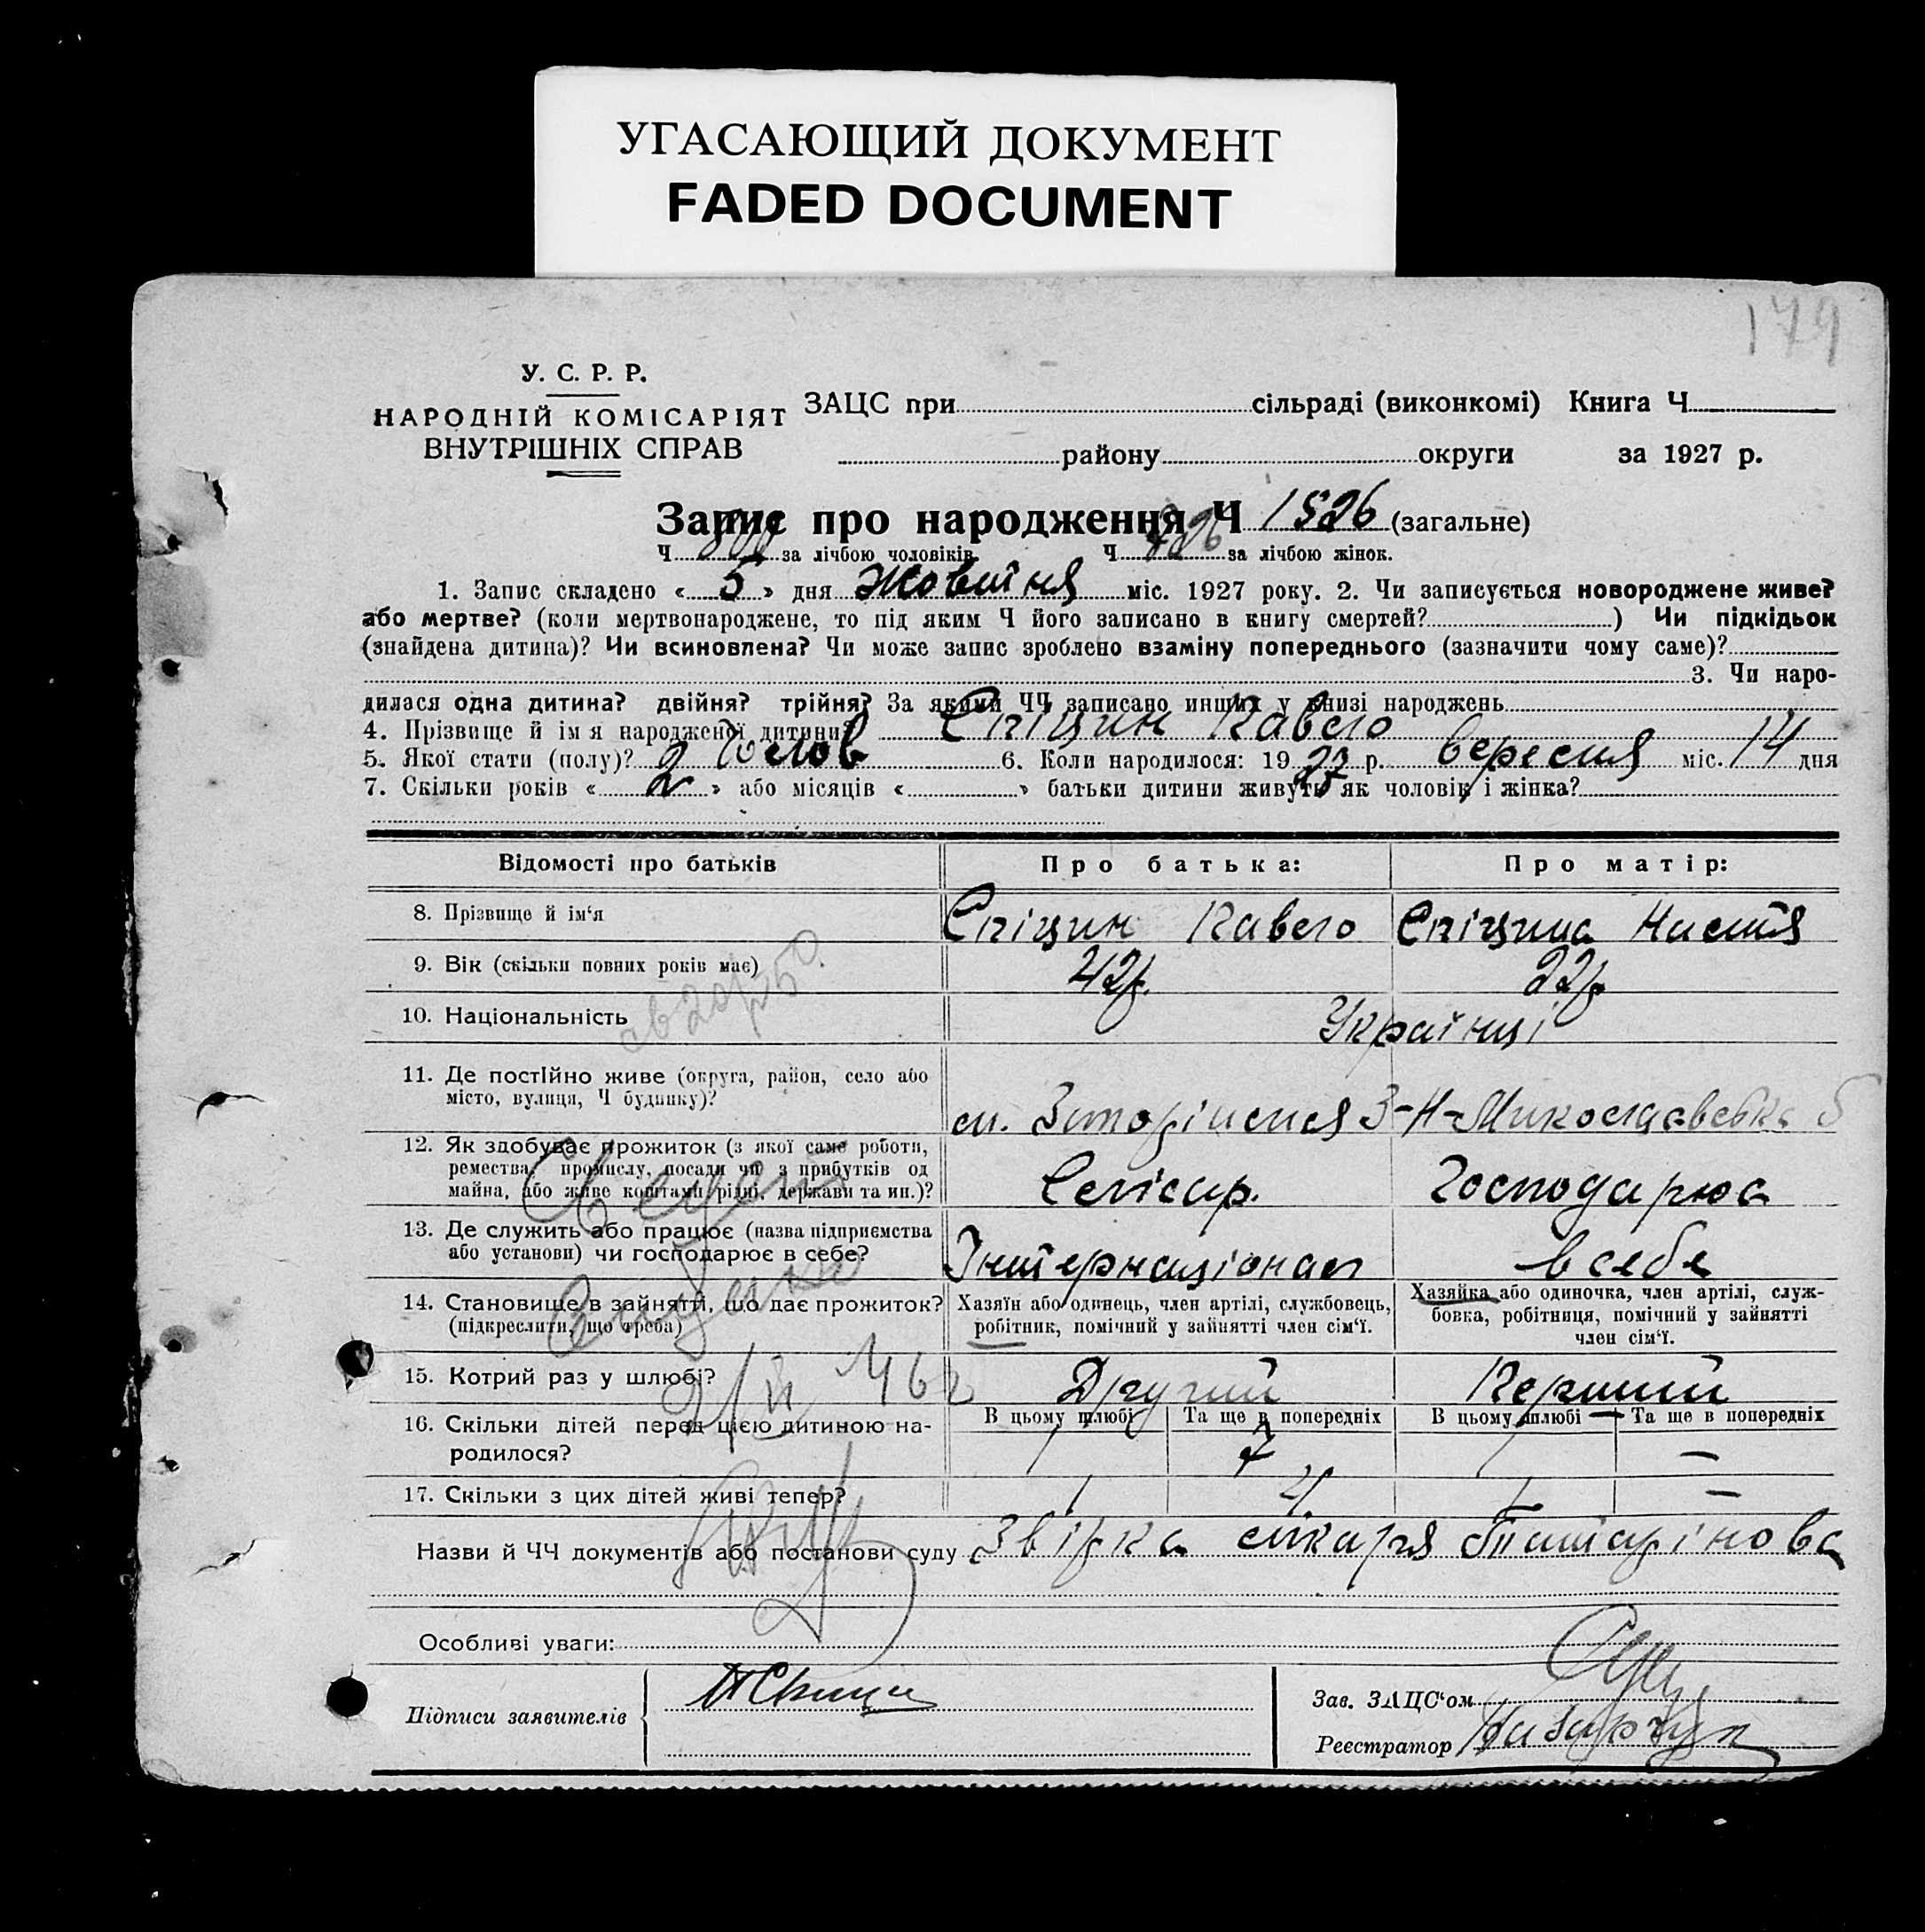 УГАСАЮЩИЙ ДОКУМЕНТ
FADED DOCUMENT
179
У. С. Р. Р.
НАРОДНІЙ КОМІСАРІЯТ
ВНУТРІШНІХ СПРАВ
ЗАЦС при сільраді (виконкомі) Книга Ч
району округи за 1927 р.
Запис про народження Ч 1526 (загальне)
Ч 800 за лічбою чоловіків. Ч 726 за лічбою жінок.
1. Запис складено « 5 » дня Жовтня міс. 1927 року. 2. Чи записується новороджене живе?
або мертве? (коли мертвонароджене, то під яким Ч його записано в книгу смертей? ) Чи підкідьок
(знайдена дитина)? Чи всиновлена? Чи може запис зроблено взаміну попереднього (зазначити чому саме)?
3. Чи наро-
дилася одна дитина? двійня? трійня? За якими ЧЧ записано инших у книзі народжень
4. Прізвище й ім я народженої дитини? Спіцин Павло
5. Якої стати (полу)? Чолов 6. Коли народилося: 19 27 р. вересня міс. 14 дня
7. Скільки років « 2 » або місяців « » батьки дитини живуть як чоловік і жінка?
Відомості про батьків Про батька: Про матір:
8. Прізвище й ім'я Спіцин Павло Спіцина Настя
9. Вік (скільки повних років має) 42р. 22р.
10. Національність Українці
11. Де постійно живе (округа, район, село або
місто, вулиця, Ч будинку)?
12. Як здобуває прожиток (з якої саме роботи,
ремества, промислу, посади чи з прибутків од
майна, або живе коштами рідні, держави та ин.)? Слісар. Господарює
13. Де служить або працює (назва підприємства
або установи) чи господарює в себе? Інтернаціонал в себе
14. Становище в зайнятті, що дає прожиток?
(підкреслити, що треба)
Хазяїн або одинець, член артілі, службовець,
робітник, помічний у зайнятті член сім'ї.
Хазяйка або одиночка, член артілі, служ-
бовка, робітниця, помічний у зайнятті
член сім'ї.
15. Котрий раз у шлюбі? Другий Перший
16. Скільки дітей перед цією дитиною на-
родилося?
В цьому шлюбі Та ще в попередніх В цьому шлюбі Та ще в попередніх
1 7 1 —
17. Скільки з цих дітей живі тепер? 1 4 1 —
Назви й ЧЧ документів або постанови суду Звірка лікаря Татарінова
Особливі уваги:
Підписи заявителів
Зав. ЗАЦС'ом
Реєстратор